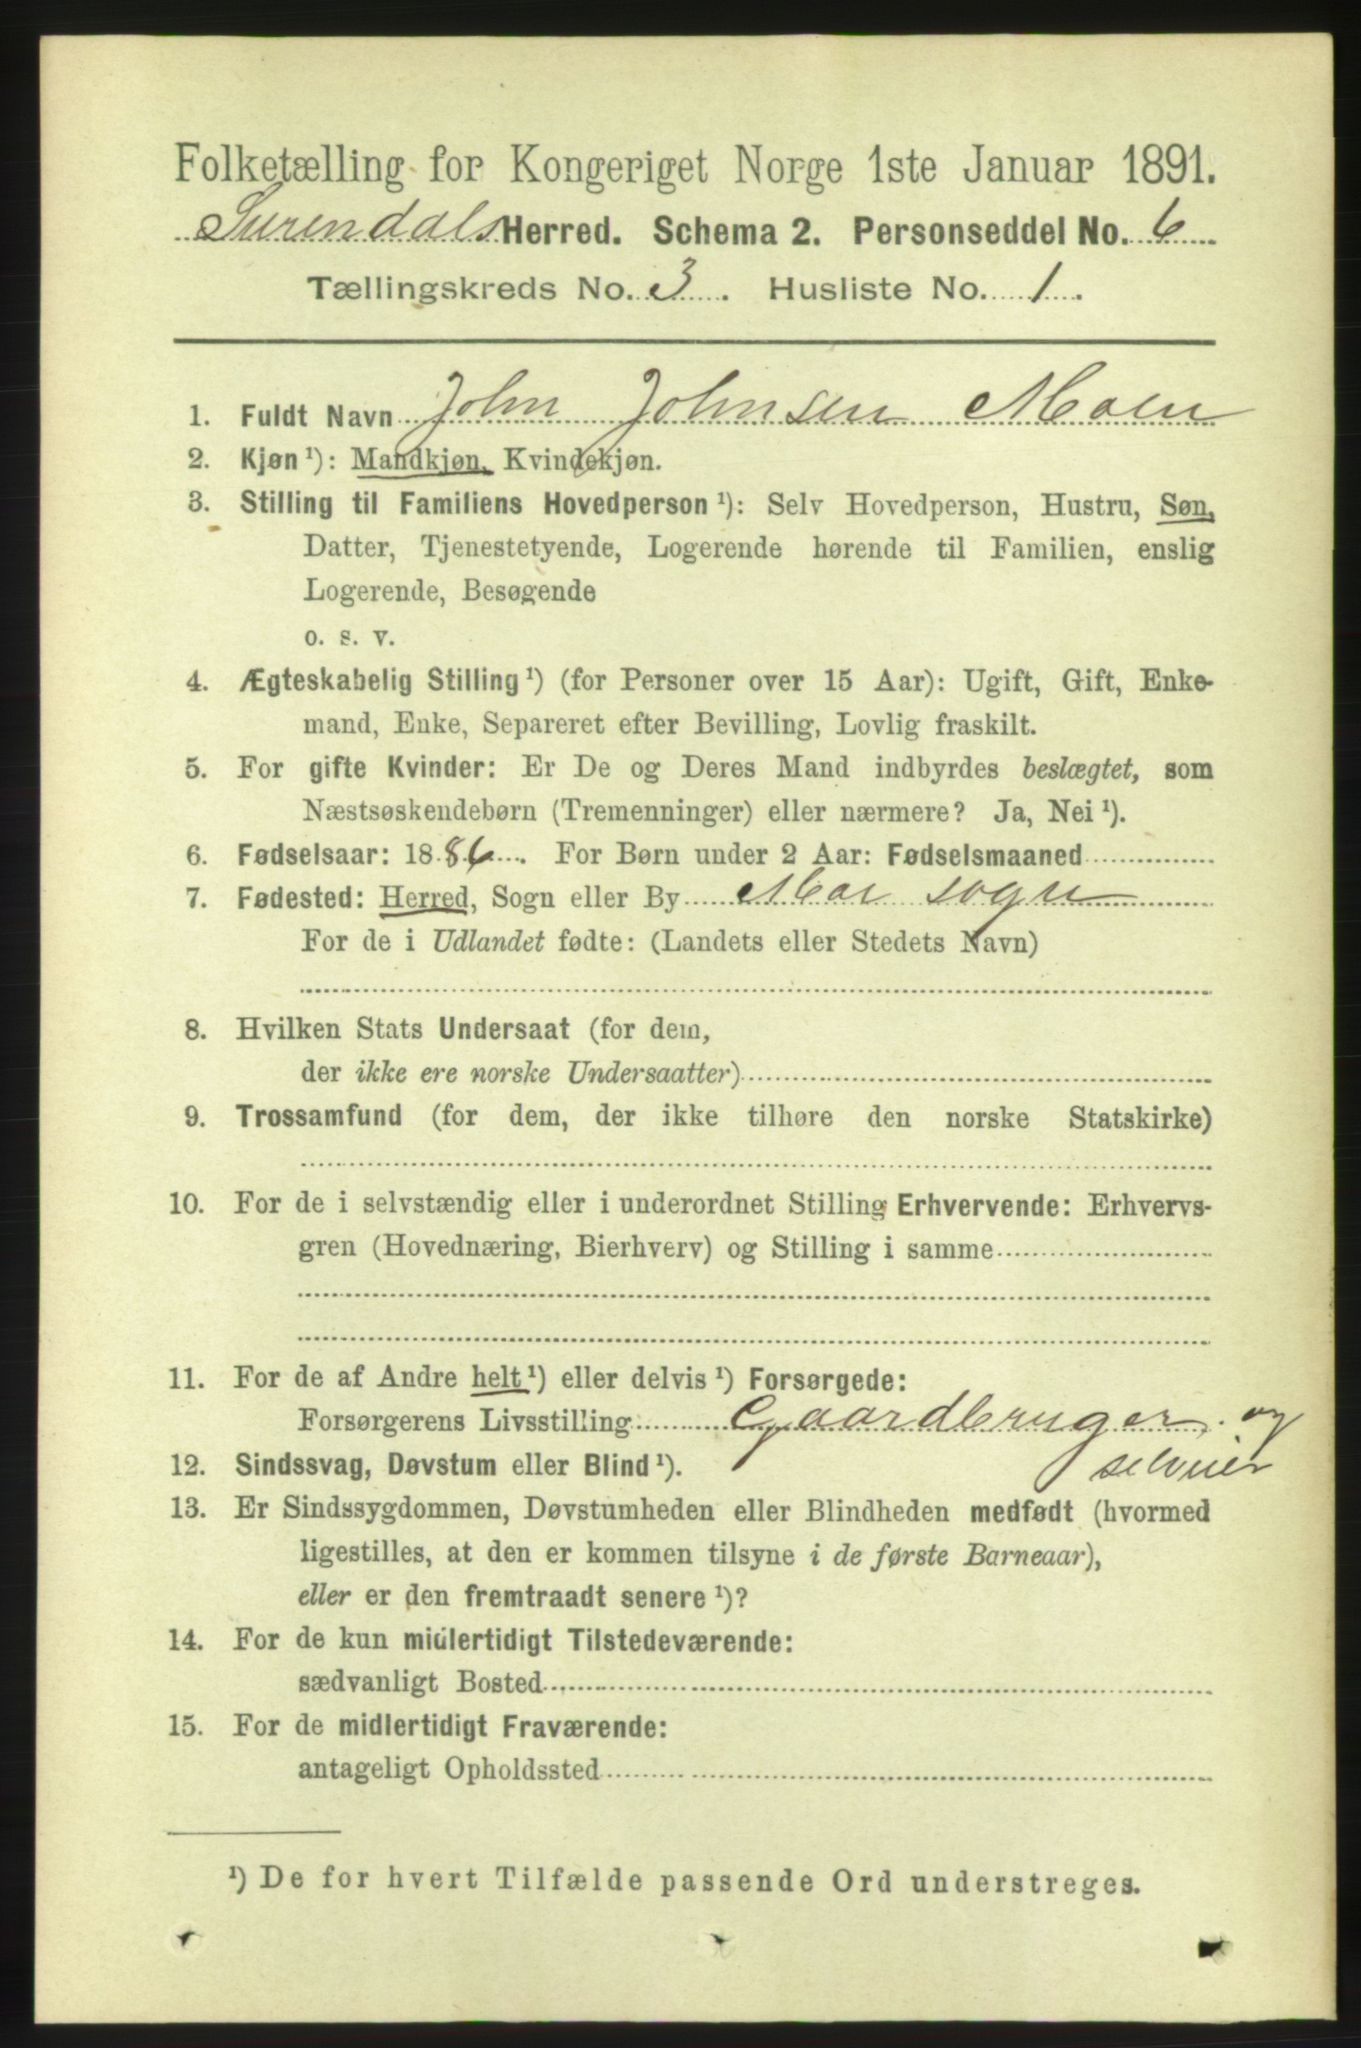 Folketælling for Kongeriget Norge 1ste Januar 1891.
Surendals Herred. Schema 2. Personseddel No. 6
Tællingskreds No. 3. Husliste No. 1.
1. Fuldt Navn John Johnsen Moen
2. Kjøn ¹): Mandkjøn, Kvindekjøn.
3. Stilling til Familiens Hovedperson ¹): Selv Hovedperson, Hustru, Søn,
Datter, Tjenestetyende, Logerende hørende til Familien, enslig
Logerende, Besøgende
o. s. v.
4. Ægteskabelig Stilling ¹) (for Personer over 15 Aar): Ugift, Gift, Enke-
mand, Enke, Separeret efter Bevilling, Lovlig fraskilt.
5. For gifte Kvinder: Er De og Deres Mand indbyrdes beslægtet, som
Næstsøskendebørn (Tremenninger) eller nærmere? Ja, Nei ¹).
6. Fødselsaar: 1886. For Børn under 2 Aar: Fødselsmaaned
7. Fødested: Herred, Sogn eller By Mo sogn
For de i Udlandet fødte: (Landets eller Stedets Navn)
8. Hvilken Stats Undersaat (for dem,
der ikke ere norske Undersaatter)
9. Trossamfund (for dem, der ikke tilhøre den norske Statskirke)
10. For de i selvstændig eller i underordnet Stilling Erhvervende: Erhvervs-
gren (Hovednæring, Bierhverv) og Stilling i samme
11. For de af Andre helt ¹) eller delvis ¹) Forsørgede:
Forsørgerens Livsstilling Gaardbruger og
selveier
12. Sindssvag, Døvstum eller Blind ¹).
13. Er Sindssygdommen, Døvstumheden eller Blindheden medfødt (hvormed
ligestilles, at den er kommen tilsyne i de første Barneaar),
eller er den fremtraadt senere ¹)?
14. For de kun midlertidigt Tilstedeværende:
sædvanligt Bosted
15. For de midlertidigt Fraværende:
antageligt Opholdssted
¹) De for hvert Tilfælde passende Ord understreges.